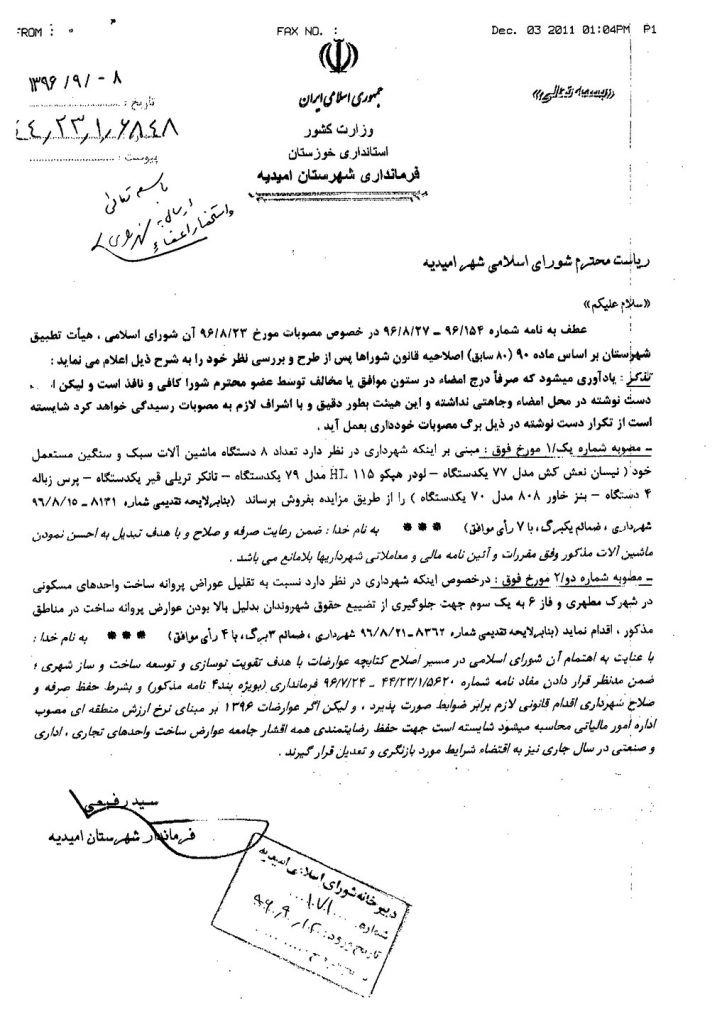 FROM : FAX NO. : Dec. 03 2011 01:04PM P1
«بسمه تعالی»
جمهوری اسلامی ایران
وزارت کشور
استانداری خوزستان
فرمانداری شهرستان امیدیه
تاریخ : ۱۳۹۶/۹/۰۸
۴۴٫۲۳٫۱٫۶۸۴۸
پیوست :
باسمه تعالی
ریاست محترم شورای اسلامی شهر امیدیه
«سلام علیکم»
عطف به نامه شماره ۹۶/۱۵۴ ــ ۹۶/۸/۲۷ در خصوص مصوبات مورخ ۹۶/۸/۲۳ آن شورای اسلامی ، هیأت تطبیق
شهرستان بر اساس ماده ۹۰ (۸۰ سابق) اصلاحیه قانون شوراها پس از طرح و بررسی نظر خود را به شرح ذیل اعلام می نماید :
تذکر : یادآوری میشود که صرفاً درج امضاء در ستون موافق یا مخالف توسط عضو محترم شورا کافی و نافذ است و لیکن
دست نوشته در محل امضاء وجاهتی نداشته و این هیئت بطور دقیق و با اشراف لازم به مصوبات رسیدگی خواهد کرد شایسته
است از تکرار دست نوشته در ذیل برگ مصوبات خودداری بعمل آید .
ــ مصوبه شماره یک/۱ مورخ فوق : مبنی بر اینکه شهرداری در نظر دارد تعداد ۸ دستگاه ماشین آلات سبک و سنگین مستعمل
خود ( نیسان نعش کش مدل ۷۷ یکدستگاه – لودر هپکو ۱۱۵ HL مدل ۷۹ یکدستگاه – تانکر تریلی قیر یکدستگاه – پرس زباله
۴ دستگاه – بنز خاور ۸۰۸ مدل ۷۰ یکدستگاه ) را از طریق مزایده بفروش برساند (بنابرلایحه تقدیمی شماره ۸۱۳۱ ــ ۹۶/۸/۱۵
شهرداری ، ضمائم یکبرگ، با ۷ رأی موافق) *** به نام خدا : ضمن رعایت صرفه و صلاح و با هدف تبدیل به احسن نمودن
ماشین آلات مذکور وفق مقررات و آئین نامه مالی و معاملاتی شهرداریها بلامانع می باشد .
ــ مصوبه شماره دو/۲ مورخ فوق : درخصوص اینکه شهرداری در نظر دارد نسبت به تقلیل عوراض پروانه ساخت واحدهای مسکونی
در شهرک مطهری و فاز ۶ به یک سوم جهت جلوگیری از تضییع حقوق شهروندان بدلیل بالا بودن عوارض پروانه ساخت در مناطق
مذکور ، اقدام نماید (بنابرلایحه تقدیمی شماره ۸۳۶۲ــ۹۶/۸/۲۱ شهرداری ، ضمائم ۳برگ، با ۴ رأی موافق) *** به نام خدا :
با عنایت به اهتمام آن شورای اسلامی در مسیر اصلاح کتابچه عوارضات با هدف تقویت نوسازی و توسعه ساخت و ساز شهری ؛
ضمن مدنظر قرار دادن مفاد نامه شماره ۴۴/۲۳/۱/۵۶۲۰ ــ ۹۶/۷/۲۴ فرمانداری (بویژه بند۴ نامه مذکور) و بشرط حفظ صرفه و
صلاح شهرداری اقدام قانونی لازم برابر ضوابط صورت پذیرد ، و لیکن اگر عوارضات ۱۳۹۶ بر مبنای نرخ ارزش منطقه ای مصوب
اداره امور مالیاتی محاسبه میشود شایسته است جهت حفظ رضایتمندی همه اقشار جامعه عوارض ساخت واحدهای تجاری ، اداری
و صنعتی در سال جاری نیز به اقتضاء شرایط مورد بازنگری و تعدیل قرار گیرند .
سید رفیعی
فرماندار شهرستان امیدیه
دبیرخانه شورای اسلامی امیدیه
شماره: ۱۰۷۱
تاریخ ورود: